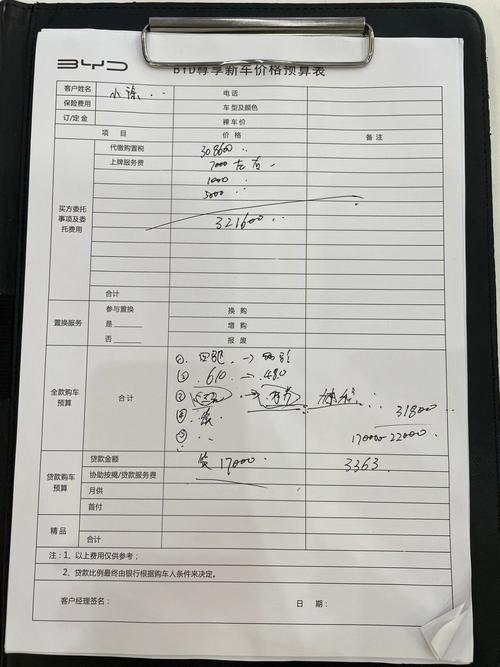 BYD
BYD尊享新车价格预算表
客户姓名 小涂 电话
保险费用 车型及颜色
订/定金 裸车价
项 目 价 格 备 注
代缴购置税 308600
上牌服务费 7000左右
1000
5000
买方委托事项及委托费用
321600
合计
置换服务
参与置换 换 购
是 增 购
否 报 废
全款购车预算
合 计
①
② 610 → 480
③
318000
④
170000-22000
⑤
贷款购车预算
贷款金额 17000 3363
协助按揭/贷款服务费
月供
首付
精 品
合计
注：1、以上费用仅供参考；
2、贷款比例最终由银行根据购车人条件来决定。
客户经理签名： 日 期：